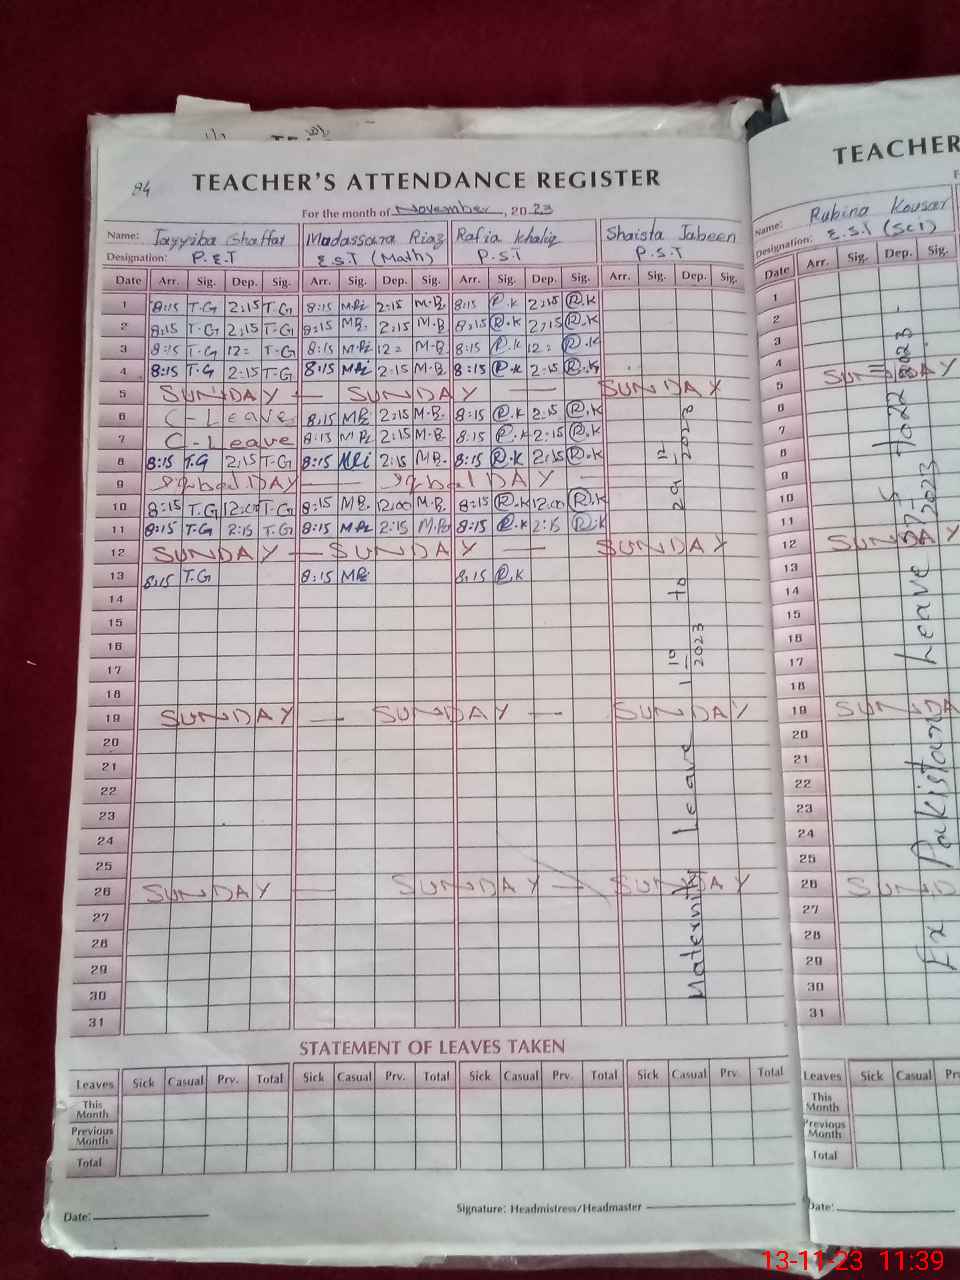 84
TEACHER'S ATTENDANCE REGISTER
For the month of November, 2023
Name: Tayyiba Ghaffar Madassara Riaz Rafia Khaliq Shaista Jabeen
Designation: P.E.T E.S.T (Math) P.S.T P.S.T
Date Arr. Sig. Dep. Sig. Arr. Sig. Dep. Sig. Arr. Sig. Dep. Sig. Arr. Sig. Dep. Sig.
1 8:15 T.G 2:15 T-G 8:15 2:15 M.R. 8:15 R.K 2:15 R.K
2 8:15 T-G 2:15 T-G 8:15 MR. 2:15 M.R 8:15 R.K 2:15 R.K
3 8:15 T-G 12= T-G 8:15 12= M-R. 8:15 R.K 12= R.K
4 8:15 T.G 2:15 T-G 8:15 2:15 M.R. 8:15 R.K 2:15 R.K
5 SUNDAY - SUNDAY SUNDAY
6 C-Leave 8:15 MR. 2:15 M.R. 8:15 R.K 2:15 R.K
7 C-Leave 8:15 2:15 M.R. 8:15 R.K 2:15 R.K
8 8:15 T.G 2:15 T-G 8:15 2:15 MR. 8:15 R.K 2:15 R.K
9 Iqbal DAY — Iqbal DAY —
10 8:15 T.G 12:00 T.G 8:15 MR. 12:00 M.R. 8:15 R.K 12:00 R.K
11 8:15 T.G 2:15 T-G 8:15 2:15 8:15 R.K 2:15 R.K
12 SUNDAY — SUNDAY — SUNDAY
13 8:15 T.G 8:15 8:15 R.K
14
15
16
17
18
19 SUNDAY — SUNDAY — SUNDAY
20
21
22
23
24
25
26 SUNDAY — SUNDAY — SUNDAY
27
28
29
30
31
Maternity Leave 1-10-2023 to 29-12-2023
STATEMENT OF LEAVES TAKEN
Leaves Sick Casual Prv. Total Sick Casual Prv. Total Sick Casual Prv. Total Sick Casual Prv. Total
This Month
Previous Month
Total
Date: Signature: Headmistress/Headmaster
TEACHER
Name: Rubina Kousar
Designation: E.S.T (Sci)
Date Arr. Sig. Dep. Sig.
1
2
3
4
5 SUNDAY
6
7
8
9
10
11
12 SUNDAY
13
14
15
16
17
18
19 SUNDA
20
21
22
23
24
25
26 SUND
27
28
29
30
31
Ex-Pakistan Leave
Leaves Sick Casual Pr
This Month
Previous Month
Total
Date:
13-11-23 11:39